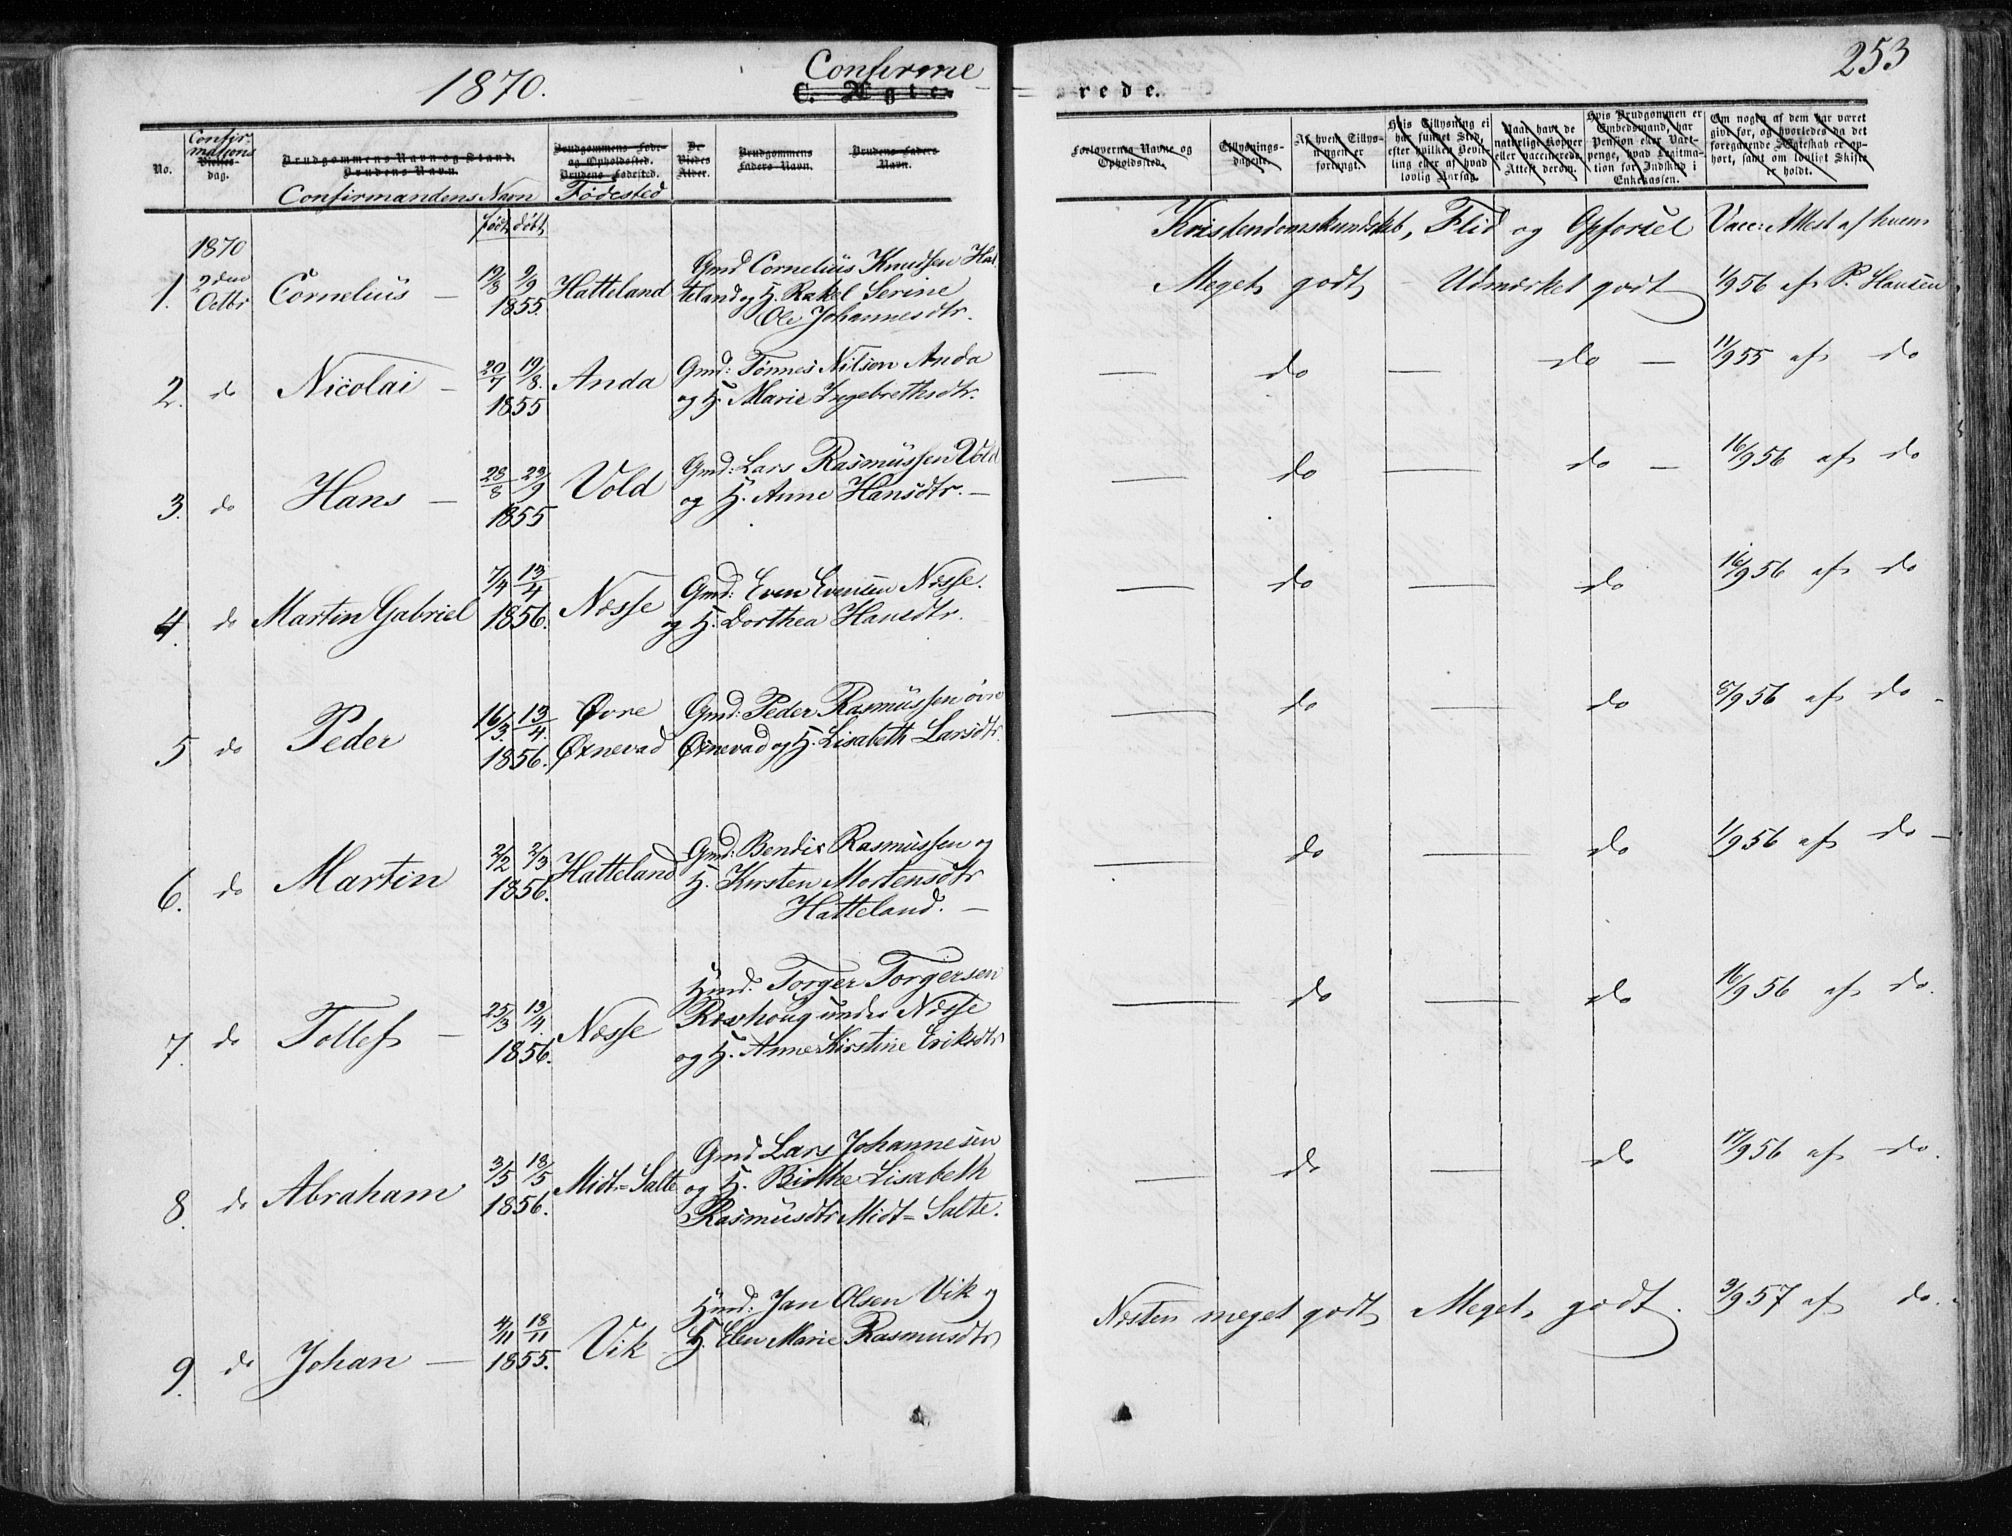 1870.
Confirme
C. Ægte-
rede.
253
No.
Confirmations
Vielses-
dag.
Brudgommens Navn og Stand.
Brudens Navn.
Confirmandens Navn
født, døbt,
Brudgommens Føde-
og Opholdssted.
Brudens Fødested.
Fødested
De
Viedes
Alder.
Brudgommens
Faders Navn.
Brudens Faders
Navn.
Forlovernes Navne og
Opholdssted.
Tillysnings-
dagene.
Af hvem Tillys-
ningen er
forlangt.
Hvis Tillysning ei
har fundet Sted,
efter hvilken Bevil-
ling eller af hvad
lovlig Aarsag.
Naar havt de
naturlige Kopper
eller vaccinerede.
Attest derom.
Hvis Brudgommen er
Embedsmand, har
Pension eller Vart-
penge, hvad Legitima-
tion for Indskud i
Enkekassen.
Om nogen af dem har været
gift før, og hvorledes da det
foregaaende Ægteskab er op-
hørt, samt om lovligt Skifte
er holdt.
Kristendomskundskb, Flid og Opførsel Vacc: Attest af hvem
1. 1870 2den Octbr Cornelius — 19/8 9/9 1855. Hatteland
Gmd Cornelius Knudsen Hat
teland og H. Rakel Serine
Ole Johannesdtr.
Meget godt - Udmærket godt 1/9 56 af P. Hansen
2. do Nicolai — 20/7 19/8. 1855 Anda
Gmd: Tønnes Nilson Anda
og H. Marie Ingebrethsdtr.
— do — do — 11/9 55 af do
3. do Hans — 28/8 23/9 1855 Vold
Gmd: Lars Rasmussen Vold
og H. Anne Hansdtr. —
— do — do — 16/9 56 af do
4. do Martin Gabriel 7/4 13/4 1856. Næsse
Gmd: Even Evensen Næsse.
og H. Dorthea Hansdtr.
— do — do 16/9 56 af do
5 do Peder 16/3. 13/4. 1856. Øvre Øxnevad
Gmd: Peder Rasmussen øvre
Øxnevad og H. Lisabeth Larsdtr.
— do — do 8/9 56 af do -
6. do Martin 2/2 2/3 1856. Hatteland
Gmd: Bendix Rasmussen og
H. Kirsten Mortensdtr
Hatteland. —
— do — do 1/9 56 af do —
7. do Tollef — 25/3 13/4. 1856. Næsse
Hmd. Torger Torgersen
Rævhoug under Næsse
og H. Anne Kirstine Eriksdtr
— do — do 16/9 56 af do.
8. do Abraham 3/5 18/5 1856. Midt=Salte
Gmd Lars Johannesen
og H. Birthe Lisabeth
Rasmusdtr Midt=Salte.
— do — do 17/9 56 af do.
9. do Johan — 4/11 18/11 1855. Vik
Hmd: Jan Olsen Vik og
H. Elen Marie Rasmusdtr
Næsten meget godt Meget godt. 3/9 57 af do.